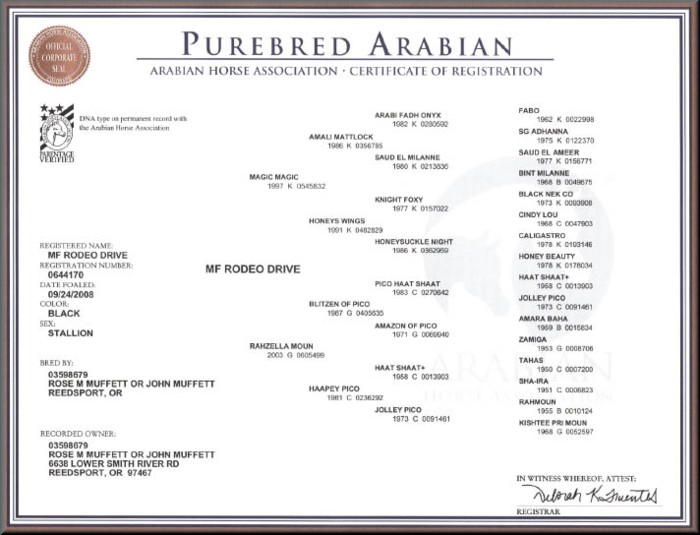 OFFICIAL
CORPORATE
SEAL
PUREBRED ARABIAN
ARABIAN HORSE ASSOCIATION · CERTIFICATE OF REGISTRATION
DNA type on permanent record with
the Arabian Horse Association
PARENTAGE
VERIFIED
REGISTERED NAME:
MF RODEO DRIVE
REGISTRATION NUMBER:
0644170
DATE FOALED:
09/24/2008
COLOR:
BLACK
SEX:
STALLION
BRED BY:
03598679
ROSE M MUFFETT OR JOHN MUFFETT
REEDSPORT, OR
RECORDED OWNER:
03598679
ROSE M MUFFETT OR JOHN MUFFETT
6638 LOWER SMITH RIVER RD
REEDSPORT, OR 97467
MF RODEO DRIVE
MAGIC MAGIC
1997 K 0545832
RAHZELLA MOUN
2003 G 0605499
AMALI MATTLOCK
1986 K 0356785
HONEYS WINGS
1991 K 0482829
BLITZEN OF PICO
1987 G 0405635
HAAPEY PICO
1981 C 0236292
ARABI FADH ONYX
1982 K 0280592
SAUD EL MILANNE
1980 K 0213836
KNIGHT FOXY
1977 K 0157022
HONEYSUCKLE NIGHT
1986 K 0362959
PICO HAAT SHAAT
1983 C 0270642
AMAZON OF PICO
1971 G 0069940
HAAT SHAAT+
1958 C 0013903
JOLLEY PICO
1973 C 0091461
FABO
1962 K 0022998
SG ADHANNA
1975 K 0122370
SAUD EL AMEER
1977 K 0156771
BINT MILANNE
1968 B 0049675
BLACK NEK CO
1973 K 0093908
CINDY LOU
1968 C 0047903
CALIGASTRO
1978 K 0193146
HONEY BEAUTY
1978 K 0178034
HAAT SHAAT+
1958 C 0013903
JOLLEY PICO
1973 C 0091461
AMARA BAHA
1959 B 0015634
ZAMIGA
1953 G 0008706
TAHAS
1950 C 0007200
SHA-IRA
1951 C 0006823
RAHMOUN
1955 B 0010124
KISHTEE PRI MOUN
1968 G 0052597
ARABIAN
HORSE ASSOCIATION
IN WITNESS WHEREOF, ATTEST:
Deborah K. Fuentes
REGISTRAR